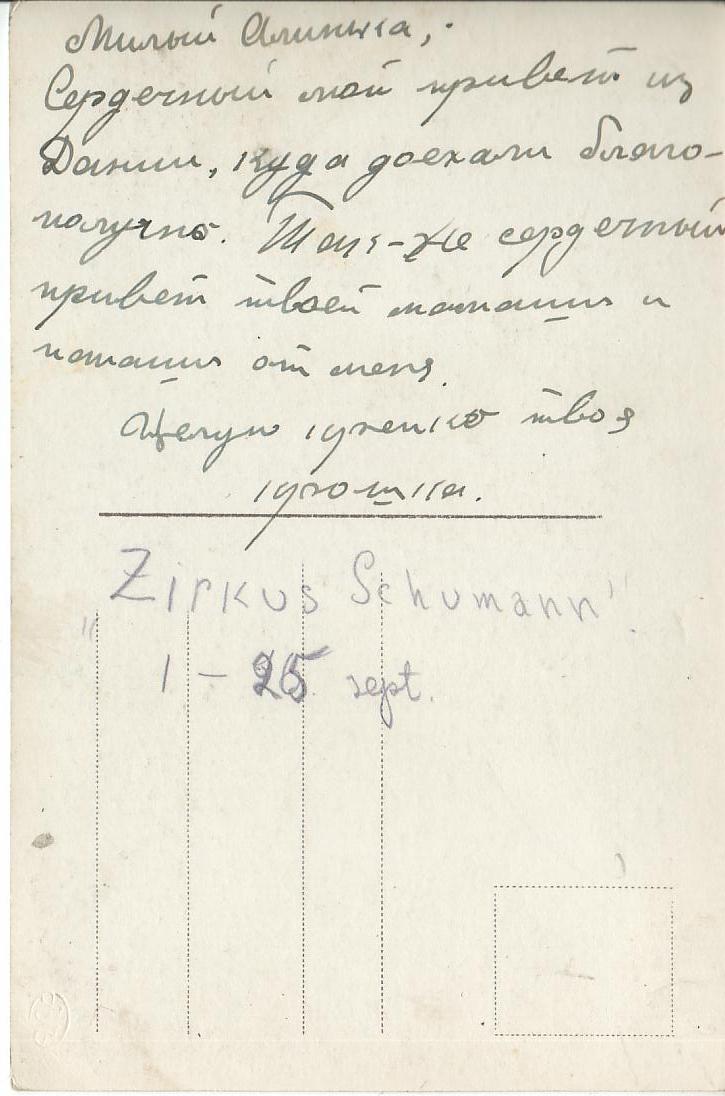 Милый Алинька,
Сердечный мой привет из
Дании, куда доехали благо-
получно. Так-же сердечный
привет твоей мамаши и
папаши от меня.
Целую крепко твоя
"Zirkus Schumann".
1 – 25 sept.